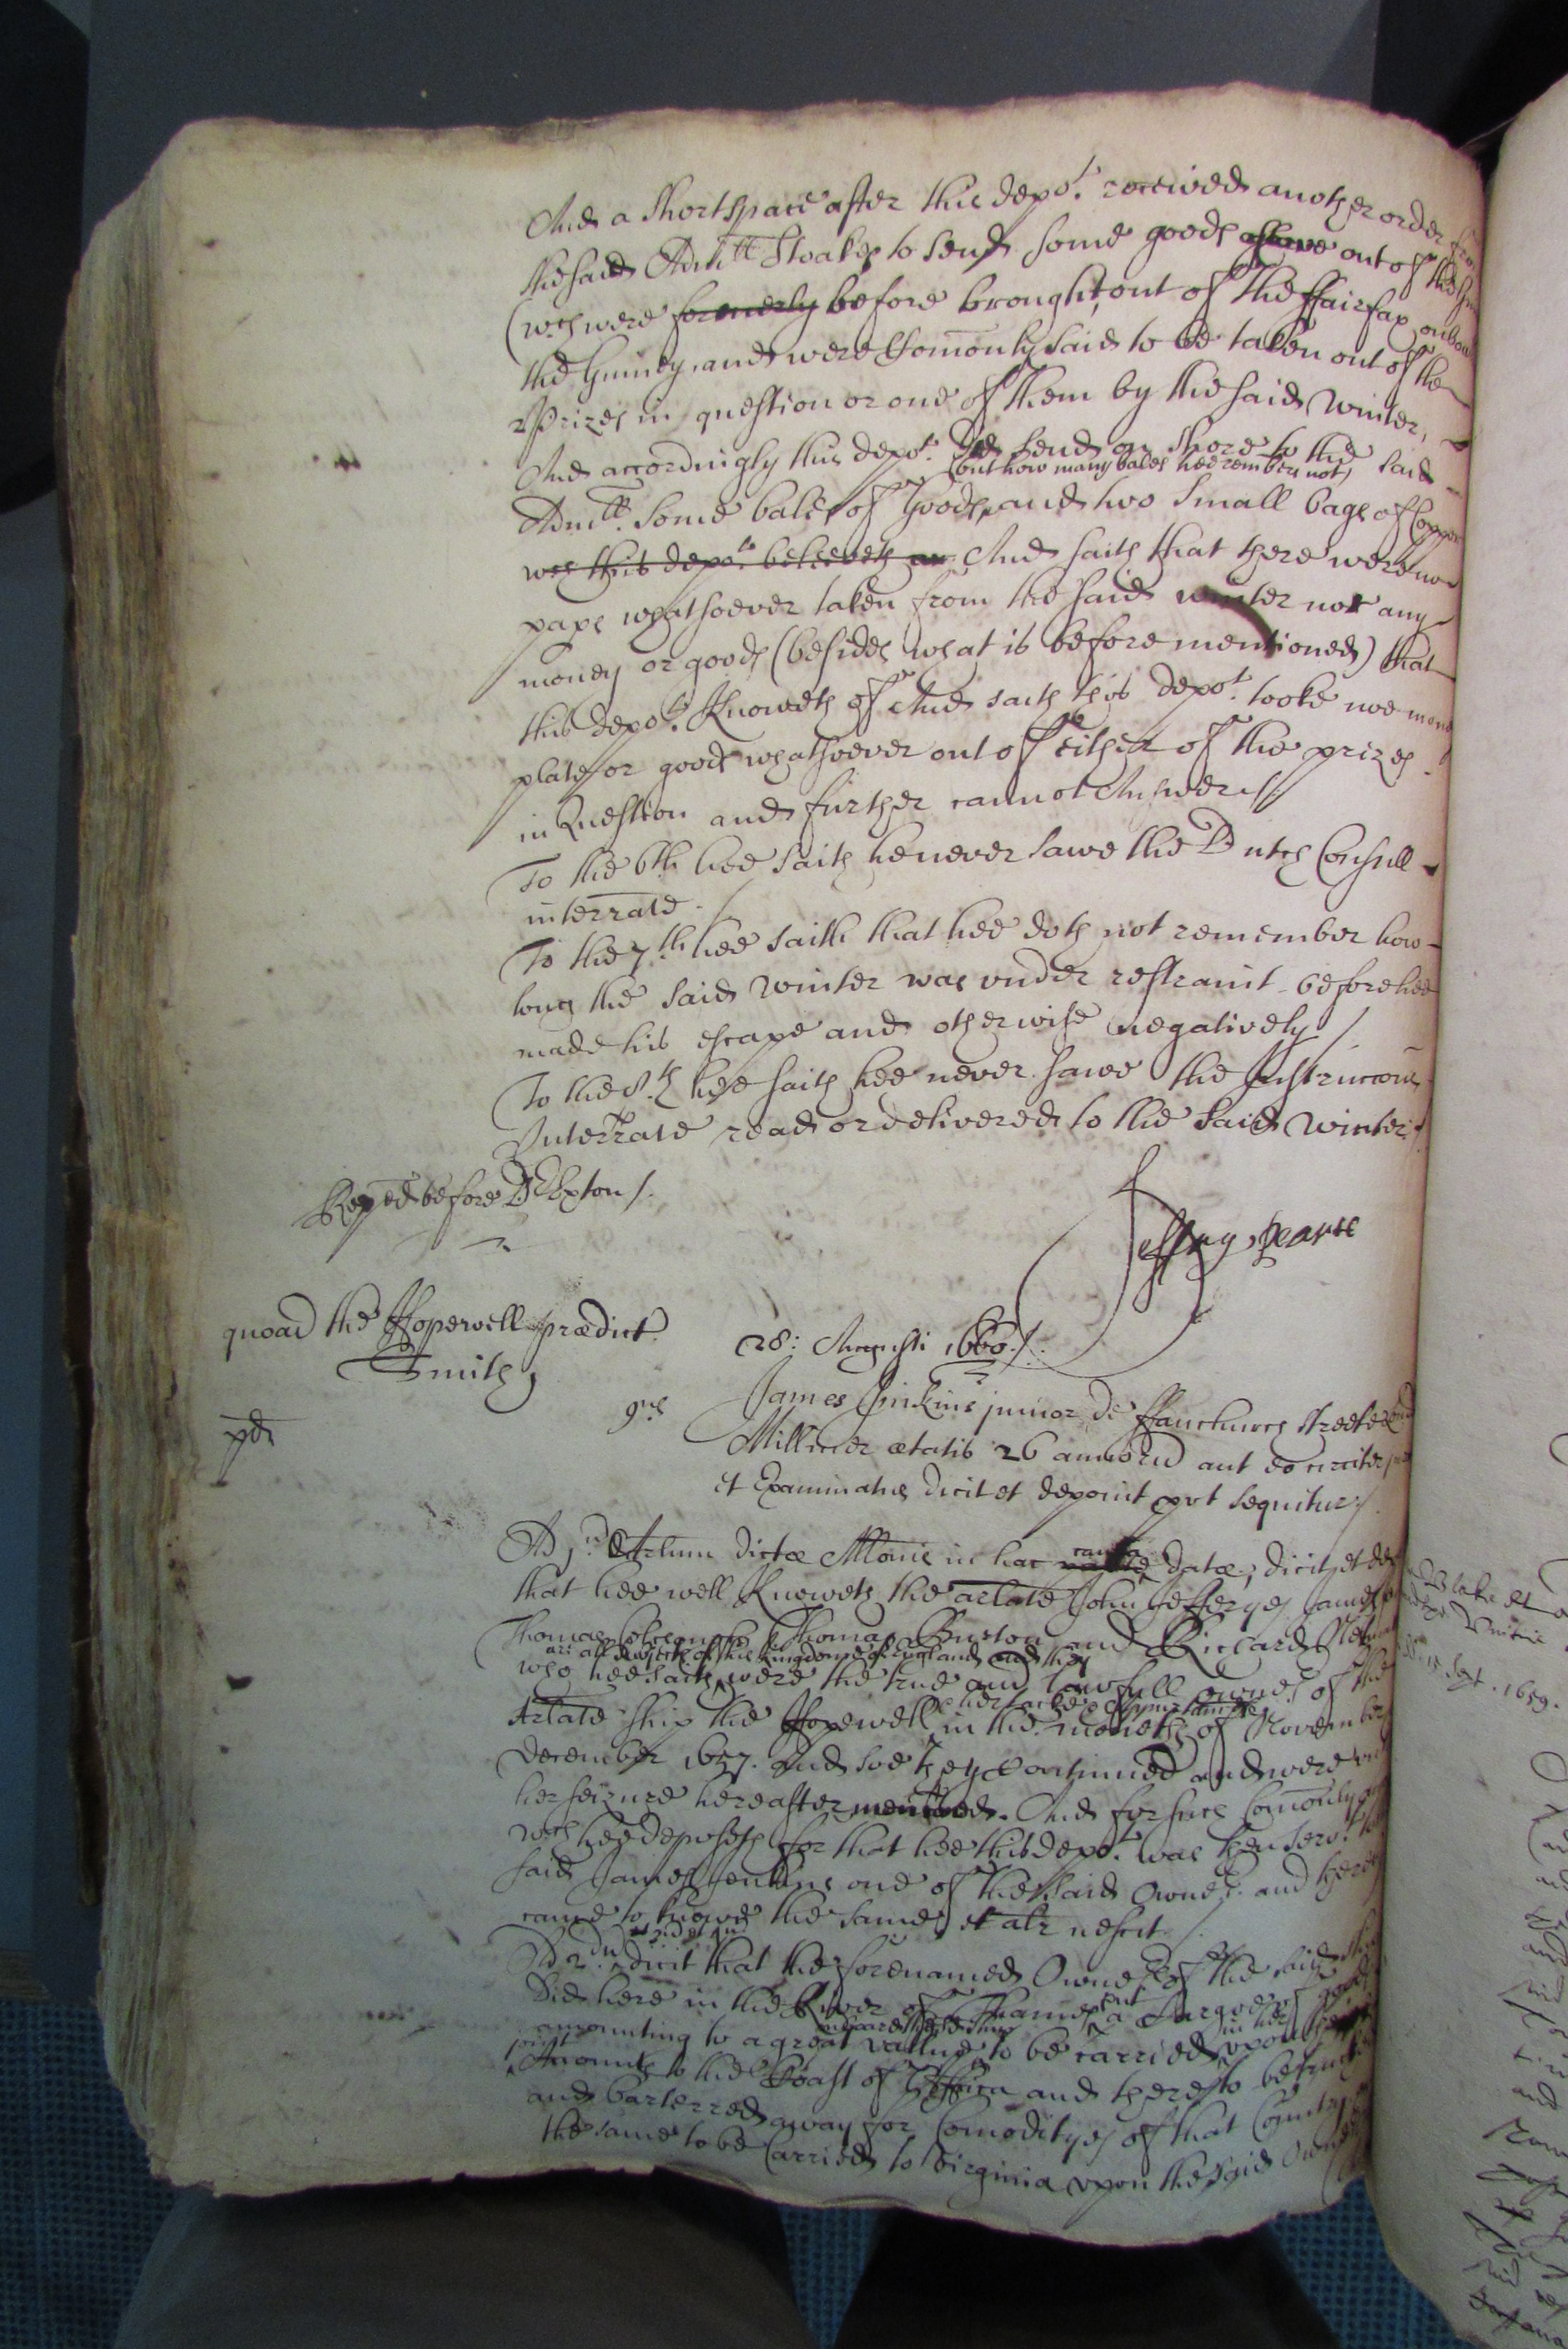 And a short space after this depo.t received another order from
the said Adm.ll Stoakes to send some goods above out of the
(w.ch were formerly before brought out of the ffairfax onboa
the Guiney, and were Comonly said to be taken out of the
Prizes in question or one of them by the said winter,
And accordingly this depo.t did send on shore to the said
(but how many bales hee rembers not)
Adm.ll some bales of Goods, and two small bags of Copper
w.ch this depo.t beleeveth And saith that there were no
paps whatsoever taken from the said winter nor any
money or goods (besides what is before mentioned) that
this depo.t Knoweth of And saith this depo.t tooke noe mony
plate or goods whatsoever out of either of the prizes
in Question and further cannot Answer./
To the 6th hee saith he never sawe the Dutch Consull
interrate./
To the 7.th hee saith that hee doth not remember how
long the said winter was under restraint before hee
made his escape and otherwise negatively/
To the 8.th hee saith hee never sawe the Instruccons
Interrate read or delivered to the said winter/
Rep.ed before D.r Exton/.
Jeffery Pearce
quoad the Hopewell prædict.
Smith,
28: Augusti 1660./.
p.de
9.us
James Jenkins junior de ffanchurch streete
Millicer ætatis 26 annoru aut eo circiter
et Examinatus dicit et deponit prt sequitur./
Ad j.um Artlum dictæ Allonis in hac causa datæ, dicit et
that hee well Knoweth the arlate John Jefferyes James
Thomas Colclough Thomas Burton and Richard
are all subjects of this kingdome of England and they
who hee saith were the true and lawfull owners of the
her tackle
Arlate ship the Hopewell in the moneths of November
december 1657. And soe they continued and were
her seizure hereafter mentioned. And for such Comonly
w.ch hee deposeth for that hee this depo.t was then serv.t to
said James Jenkins one of the said Owners and there
came to knowe the same, et alr nescit./
Ad 2.dum dicit that the forenamed Owners of the said
Did here in the River of Thames put a Cargoe of goods
amounting to a great vallue to be carried upon
joint
Accounts to the Coast of Affrica and there to be
and bartered away for Comodityes of that Country
the same to be Carried to Virginia upon the said Owners
1659.